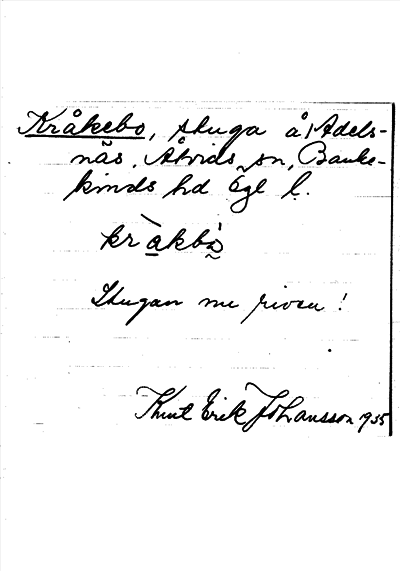 Kråkebo, stuga å Adels-
näs, Åtvids sn, Banke-
kinds hd Ögl l.
kràkbó
Stugan nu riven!
Knut Erik Johansson 1935